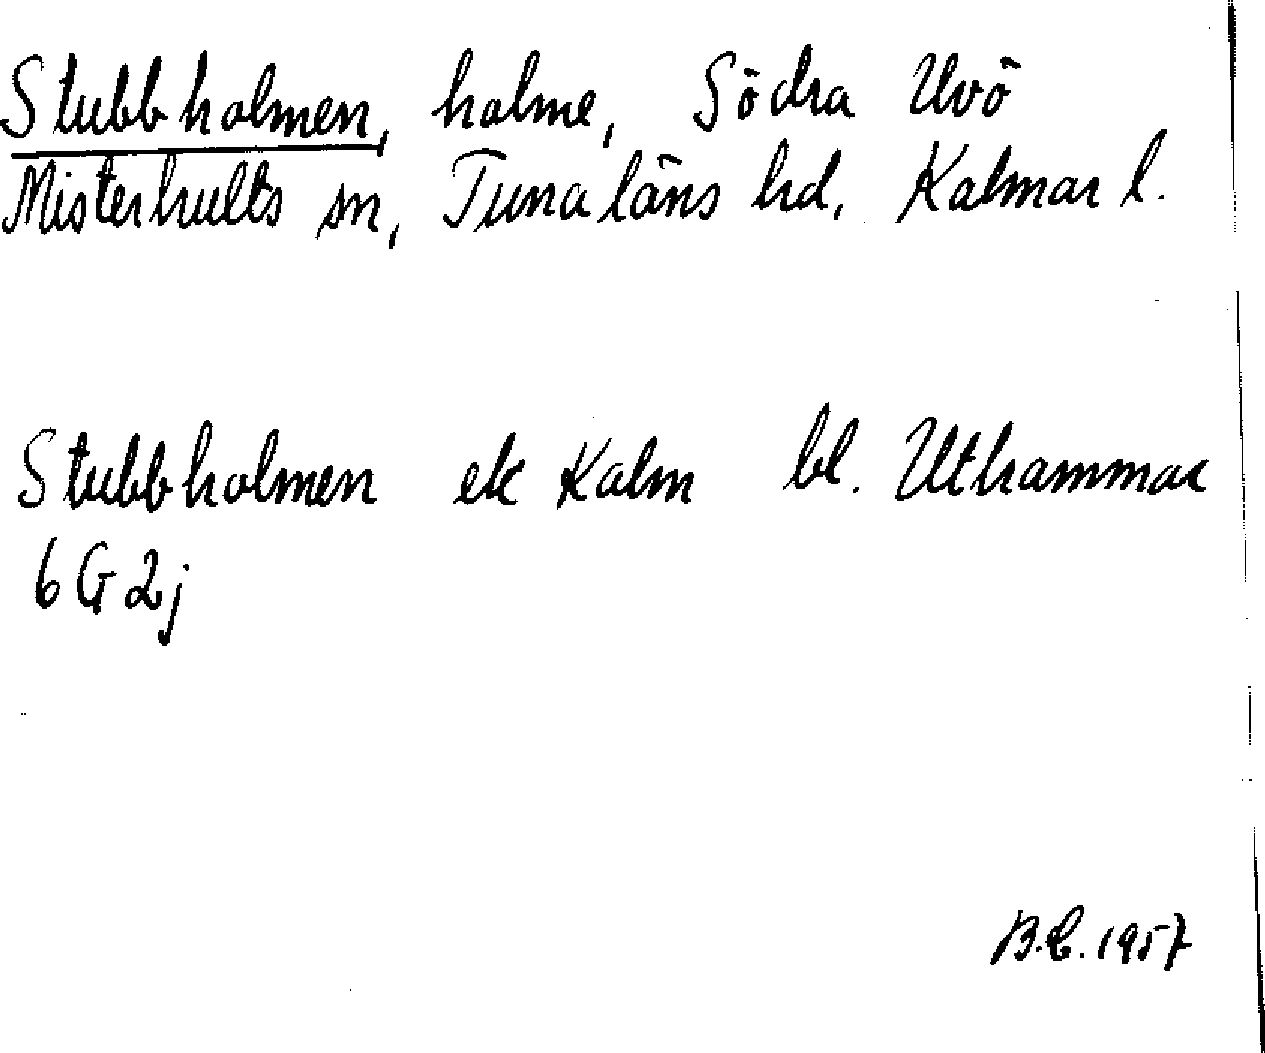 Stubbholmen, holme, Södra Uvö
Misterhults sn, Tunaläns hd, Kalmar l.
Stubbholmen ek Kalm bl. Uthammar
6G2j
B.C. 1957